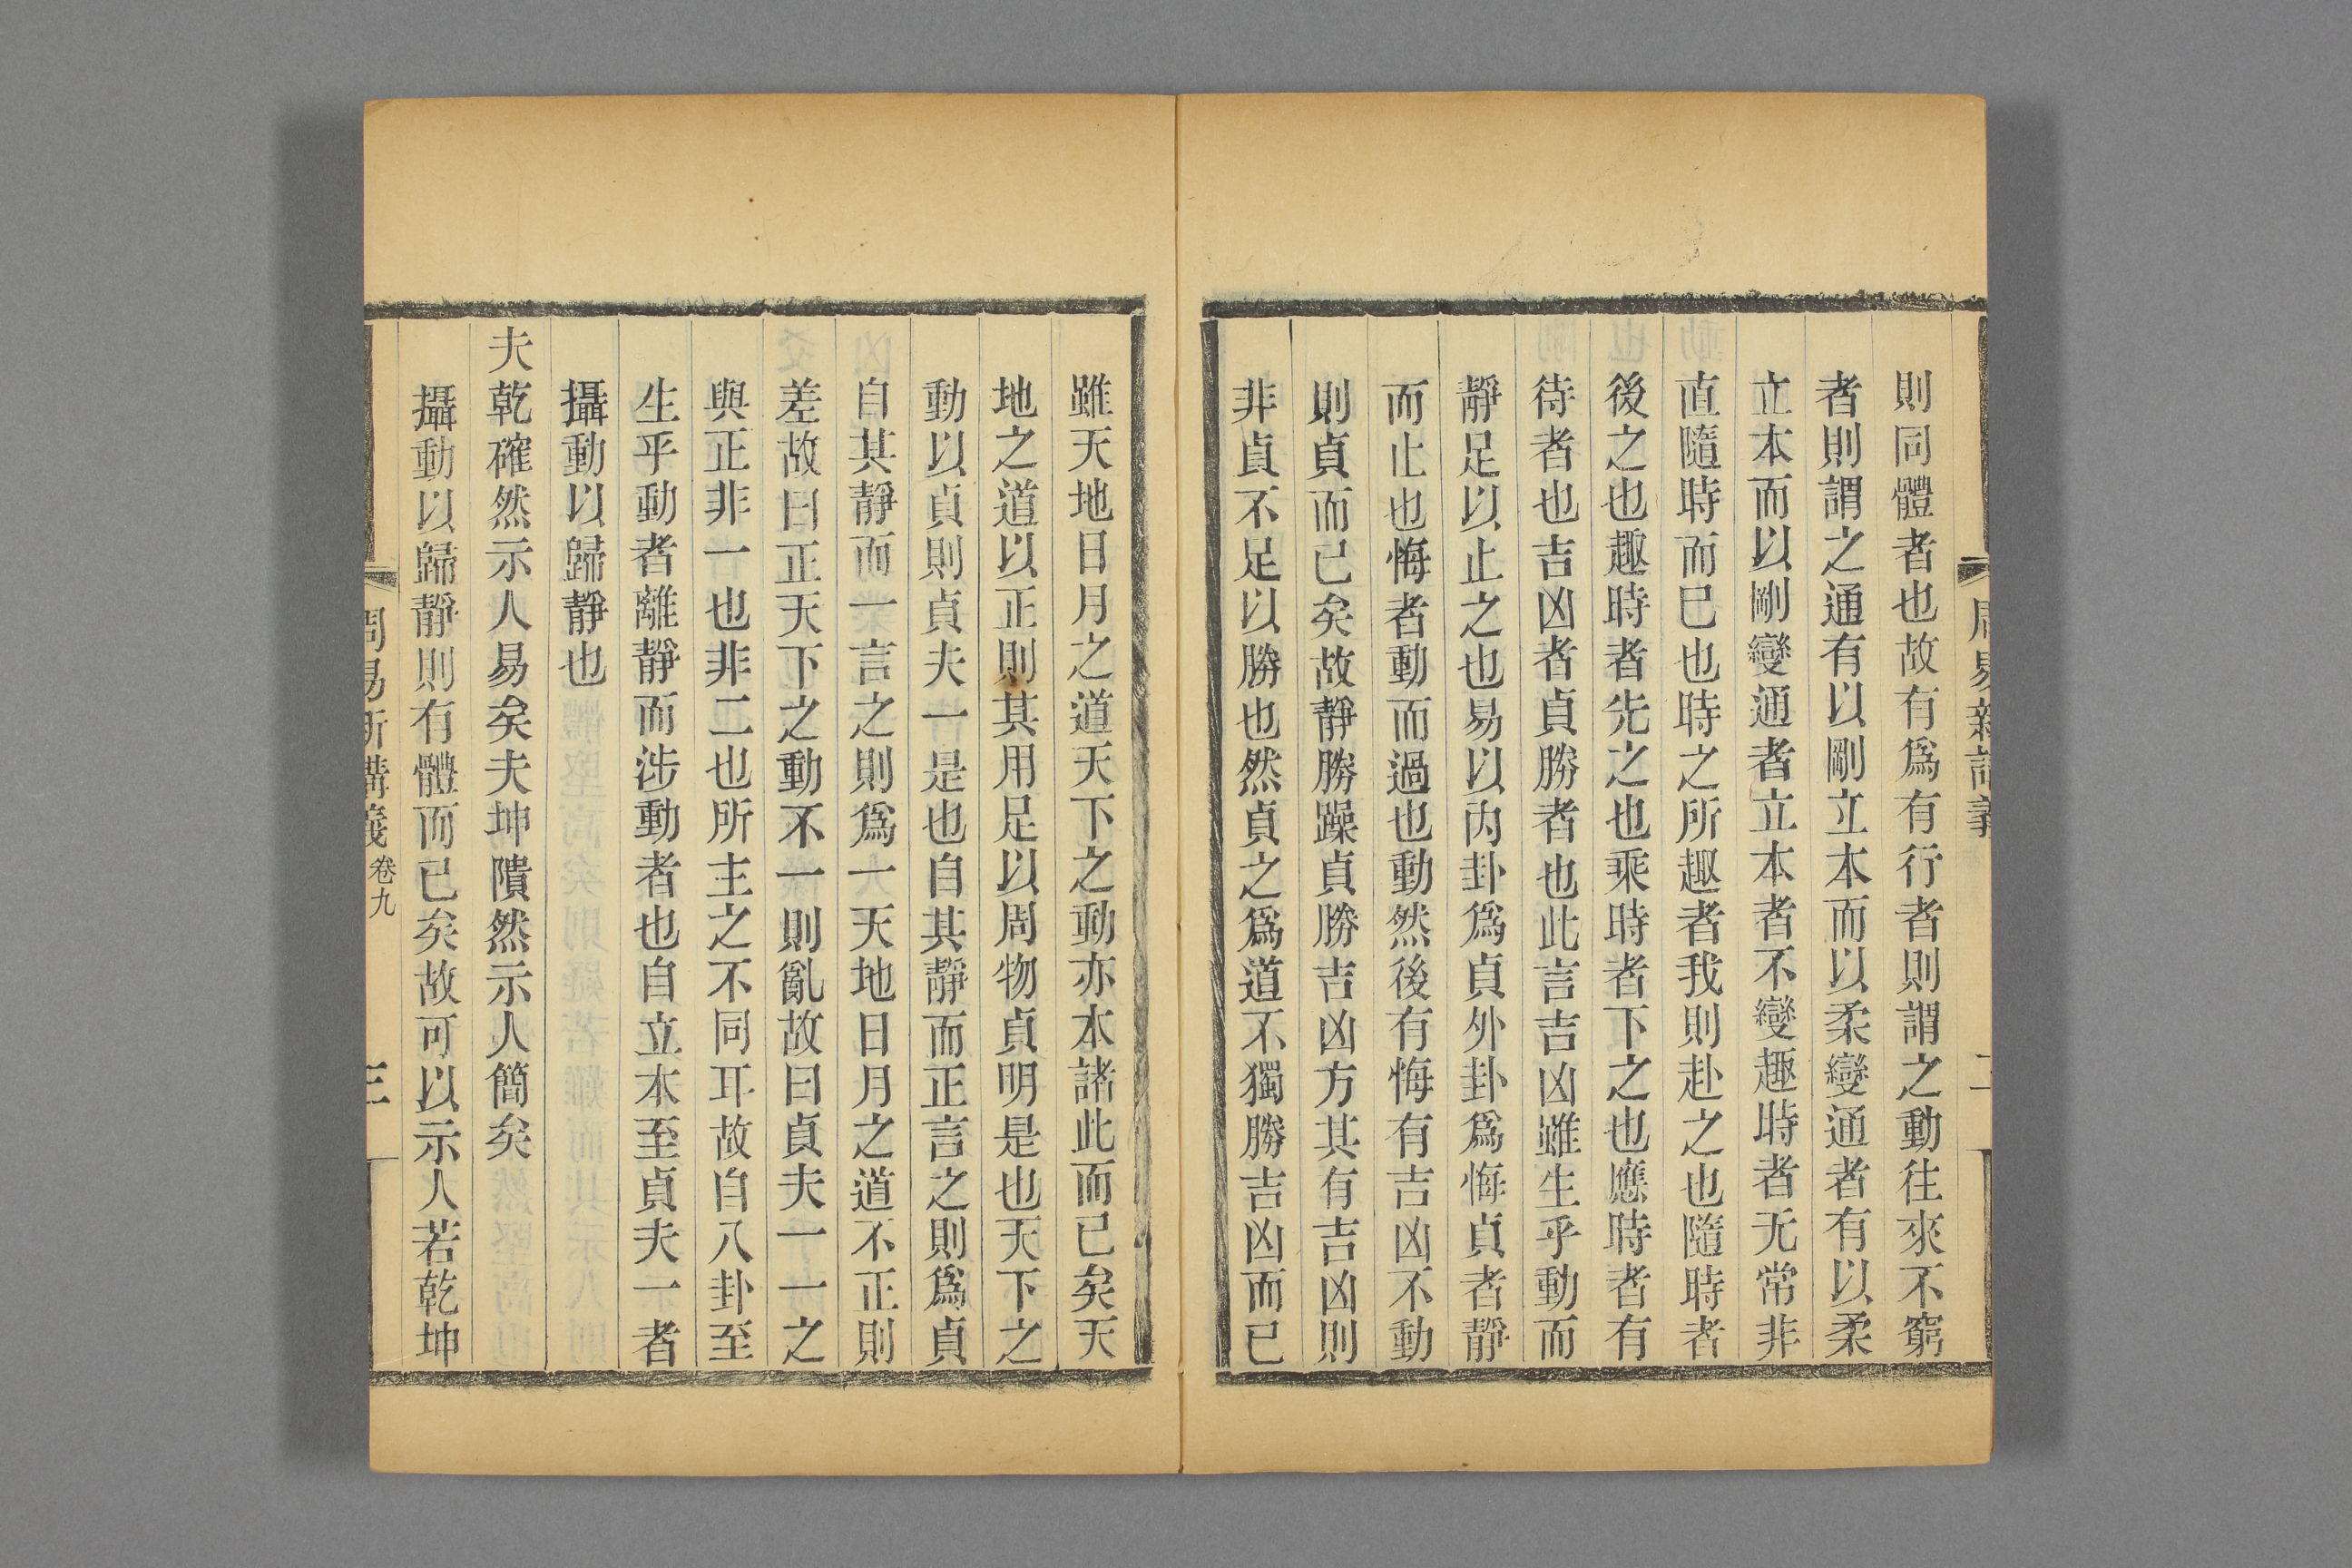 則同體者也故有爲有行者則謂之動往來不窮
者則謂之通有以剛立本而以柔變通者有以柔
立本而以剛變通者立本者不變趣時者无常非
直隨時而已也時之所趣者我則赴之也隨時者
後之也趣時者先之也乘時者下之也應時者有
待者也吉凶者貞勝者也此言吉凶雖生乎動而
靜足以止之也易以內卦爲貞外卦爲悔貞者靜
而止也悔者動而過也動然後有悔有吉凶不動
則貞而已矣故靜勝躁貞勝吉凶方其有吉凶則
非貞不足以勝也然貞之爲道不獨勝吉凶而已
雖天地日月之道天下之動亦本諸此而已矣天
地之道以正則其用足以周物貞明是也天下之
動以貞則貞夫一是也自其靜而正言之則爲貞
自其靜而一言之則爲一天地日月之道不正則
差故曰正天下之動不一則亂故曰貞夫一一之
與正非一也非二也所主之不同耳故自八卦至
生乎動者離靜而涉動者也自立本至貞夫一者
攝動以歸靜也
夫乾確然示人易矣夫坤隤然示人簡矣
攝動以歸靜則有體而已矣故可以示人若乾坤
周易新講義 卷九 三